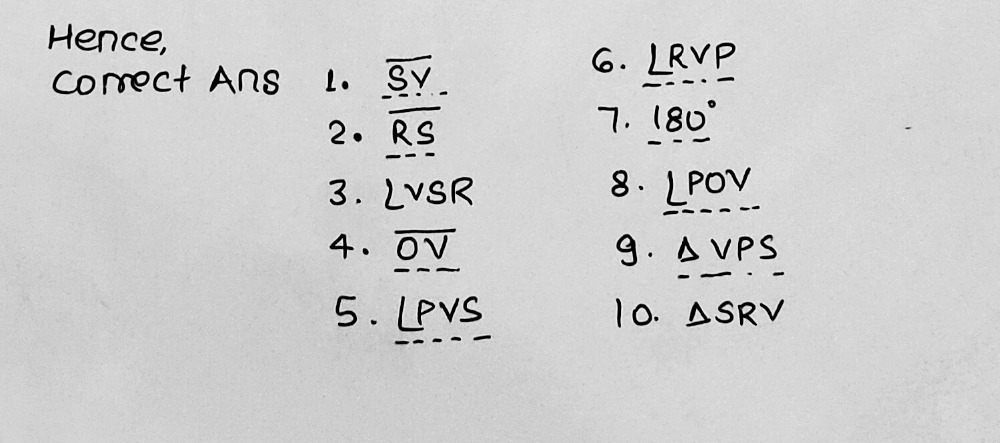 Hence,
Correct Ans
1. S̅V̅
2. R̅S̅
3. ∠VSR
4. O̅V̅
5. ∠PVS
6. ∠RVP
7. 180°
8. ∠POV
9. Δ VPS
10. ΔSRV